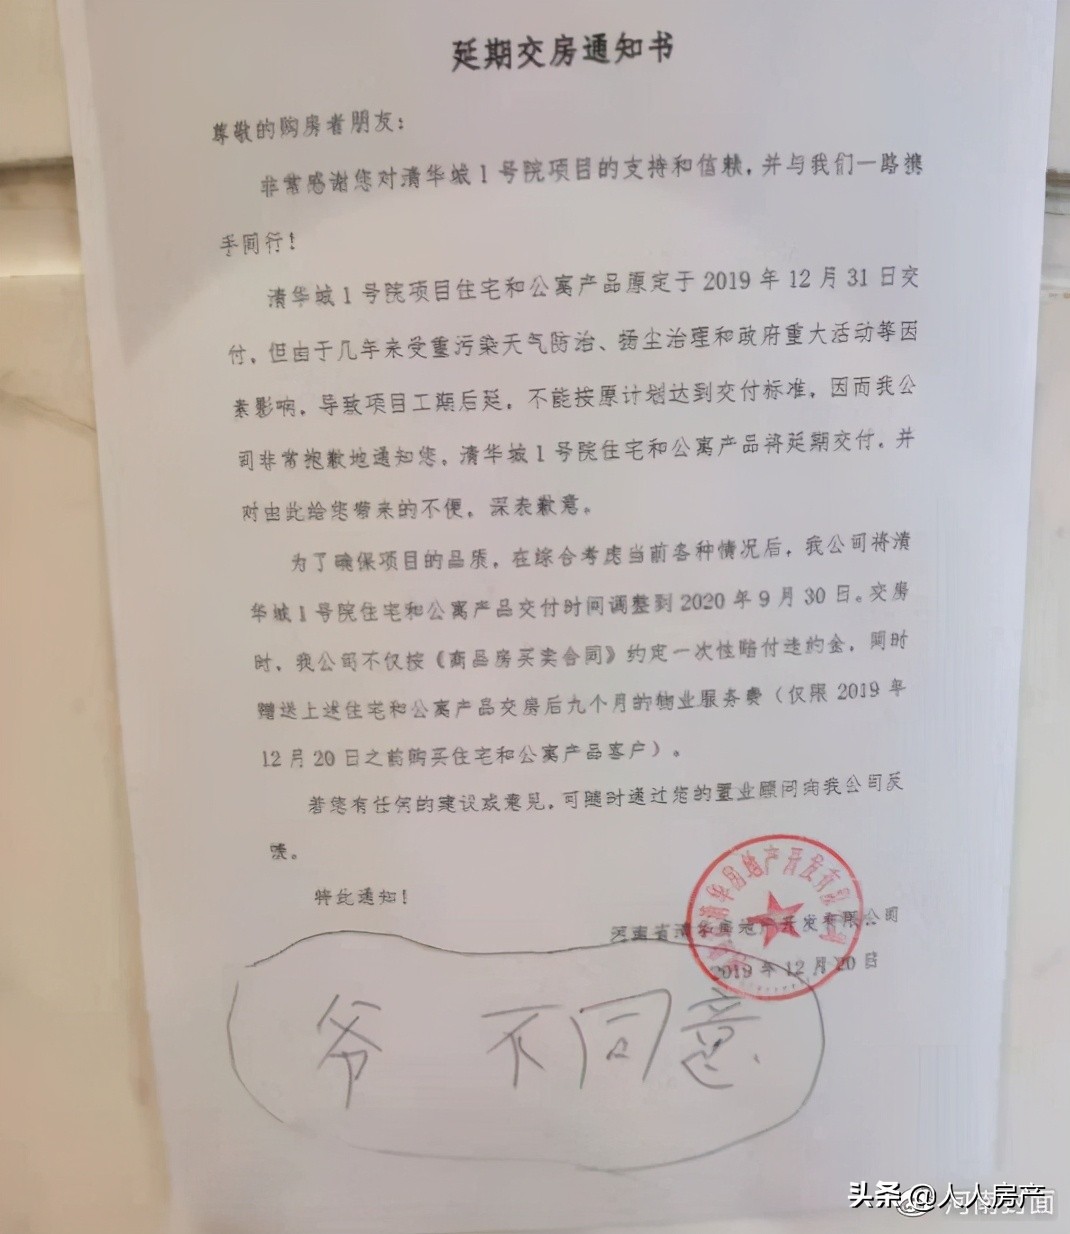 延期交房通知书
尊敬的购房者朋友：
非常感谢您对清华城1号院项目的支持和信赖，并与我们一路携
手同行！
清华城1号院项目住宅和公寓产品原定于2019年12月31日交
付，但由于几年来受重污染天气防治、扬尘治理和政府重大活动等因
素影响，导致项目工期后延，不能按原计划达到交付标准，因而我公
司非常抱歉地通知您，清华城1号院住宅和公寓产品将延期交付，并
对由此给您带来的不便，深表歉意。
为了确保项目的品质，在综合考虑当前各种情况后，我公司将清
华城1号院住宅和公寓产品交付时间调整到2020年9月30日。交房
时，我公司不仅按《商品房买卖合同》约定一次性赔付违约金，同时
赠送上述住宅和公寓产品交房后九个月的物业服务费（仅限2019年
12月20日之前购买住宅和公寓产品客户）。
若您有任何的建议或意见，可随时通过您的置业顾问向我公司反
馈。
特此通知！
河南省清华房地产开发有限公司
2019年12月20日
爷 不同意
头条 @人人房产
河南封面